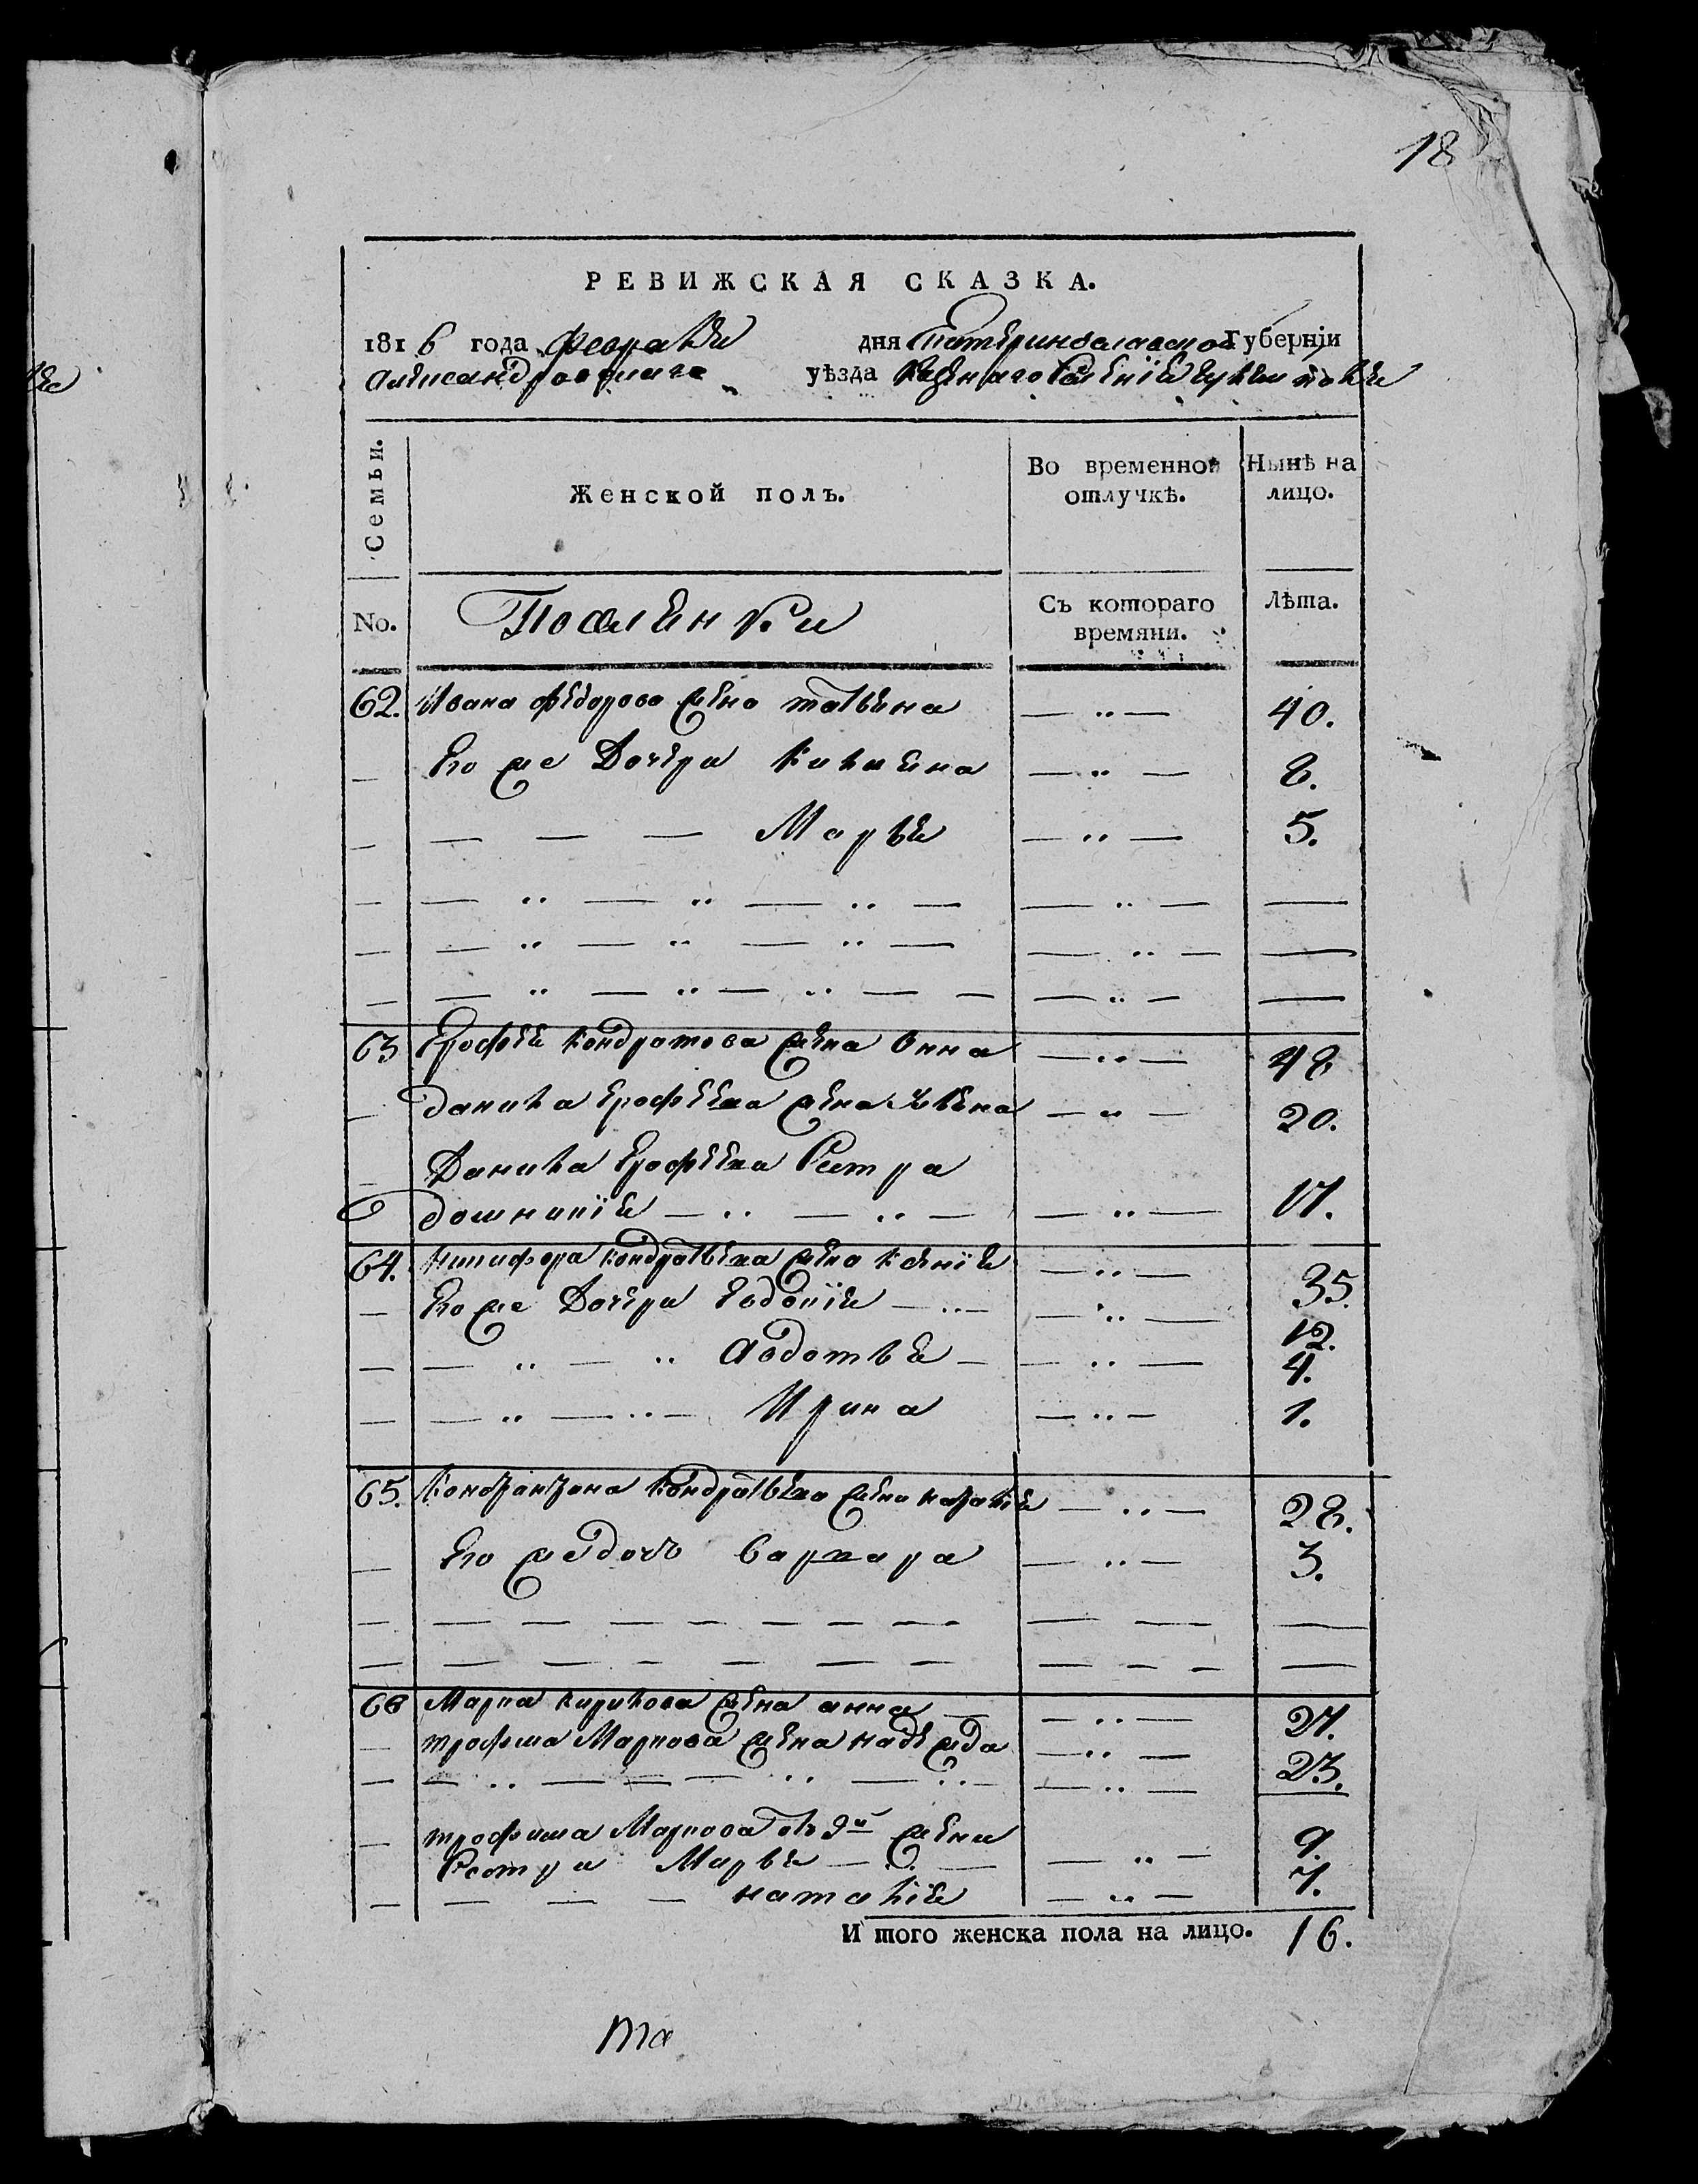 18
РЕВИЖСКАЯ СКАЗКА.
1816 года февраля дня Екатеринославской Губерніи
Александровскаго уѣзда казеннаго селенія
Семьи. Женской полъ. Во временной отлучкѣ. Нынѣ на лицо.
No. Поселенки Съ котораго времяни. Лѣта.
62. Ивана Федорова жена Татьяна — „ — 40.
— Его же дочери Килина — „ — 8.
— — — — Марья — „ — 5.
63 Ерофея Кондратова жена Анна — „ — 48
— Данила Ерофеева жена — „ — 20.
— Данила Ерофеева сестра
домникія — „ — „ — — „ — 17.
64. Никифора Кондратьева жена Ксенія — „ — 35.
— Его же дочери Евдокія — „ — — „ — 12.
— — „ — „ Авдотья — — „ — 4.
— — „ — „ — Ирина — „ — 1.
65. Константина Кондратьева жена — „ — 28.
— Его же дочь варвара — „ — 3.
66 Марка Кирилова жена анна — — „ — 27.
— трофима Маркова жена надежда — „ — 23.
— трофима Маркова жени
Сестри Марья — „ — — „ — 9.
— — — — наталія — „ — 7.
И того женска пола на лицо. 16.
та